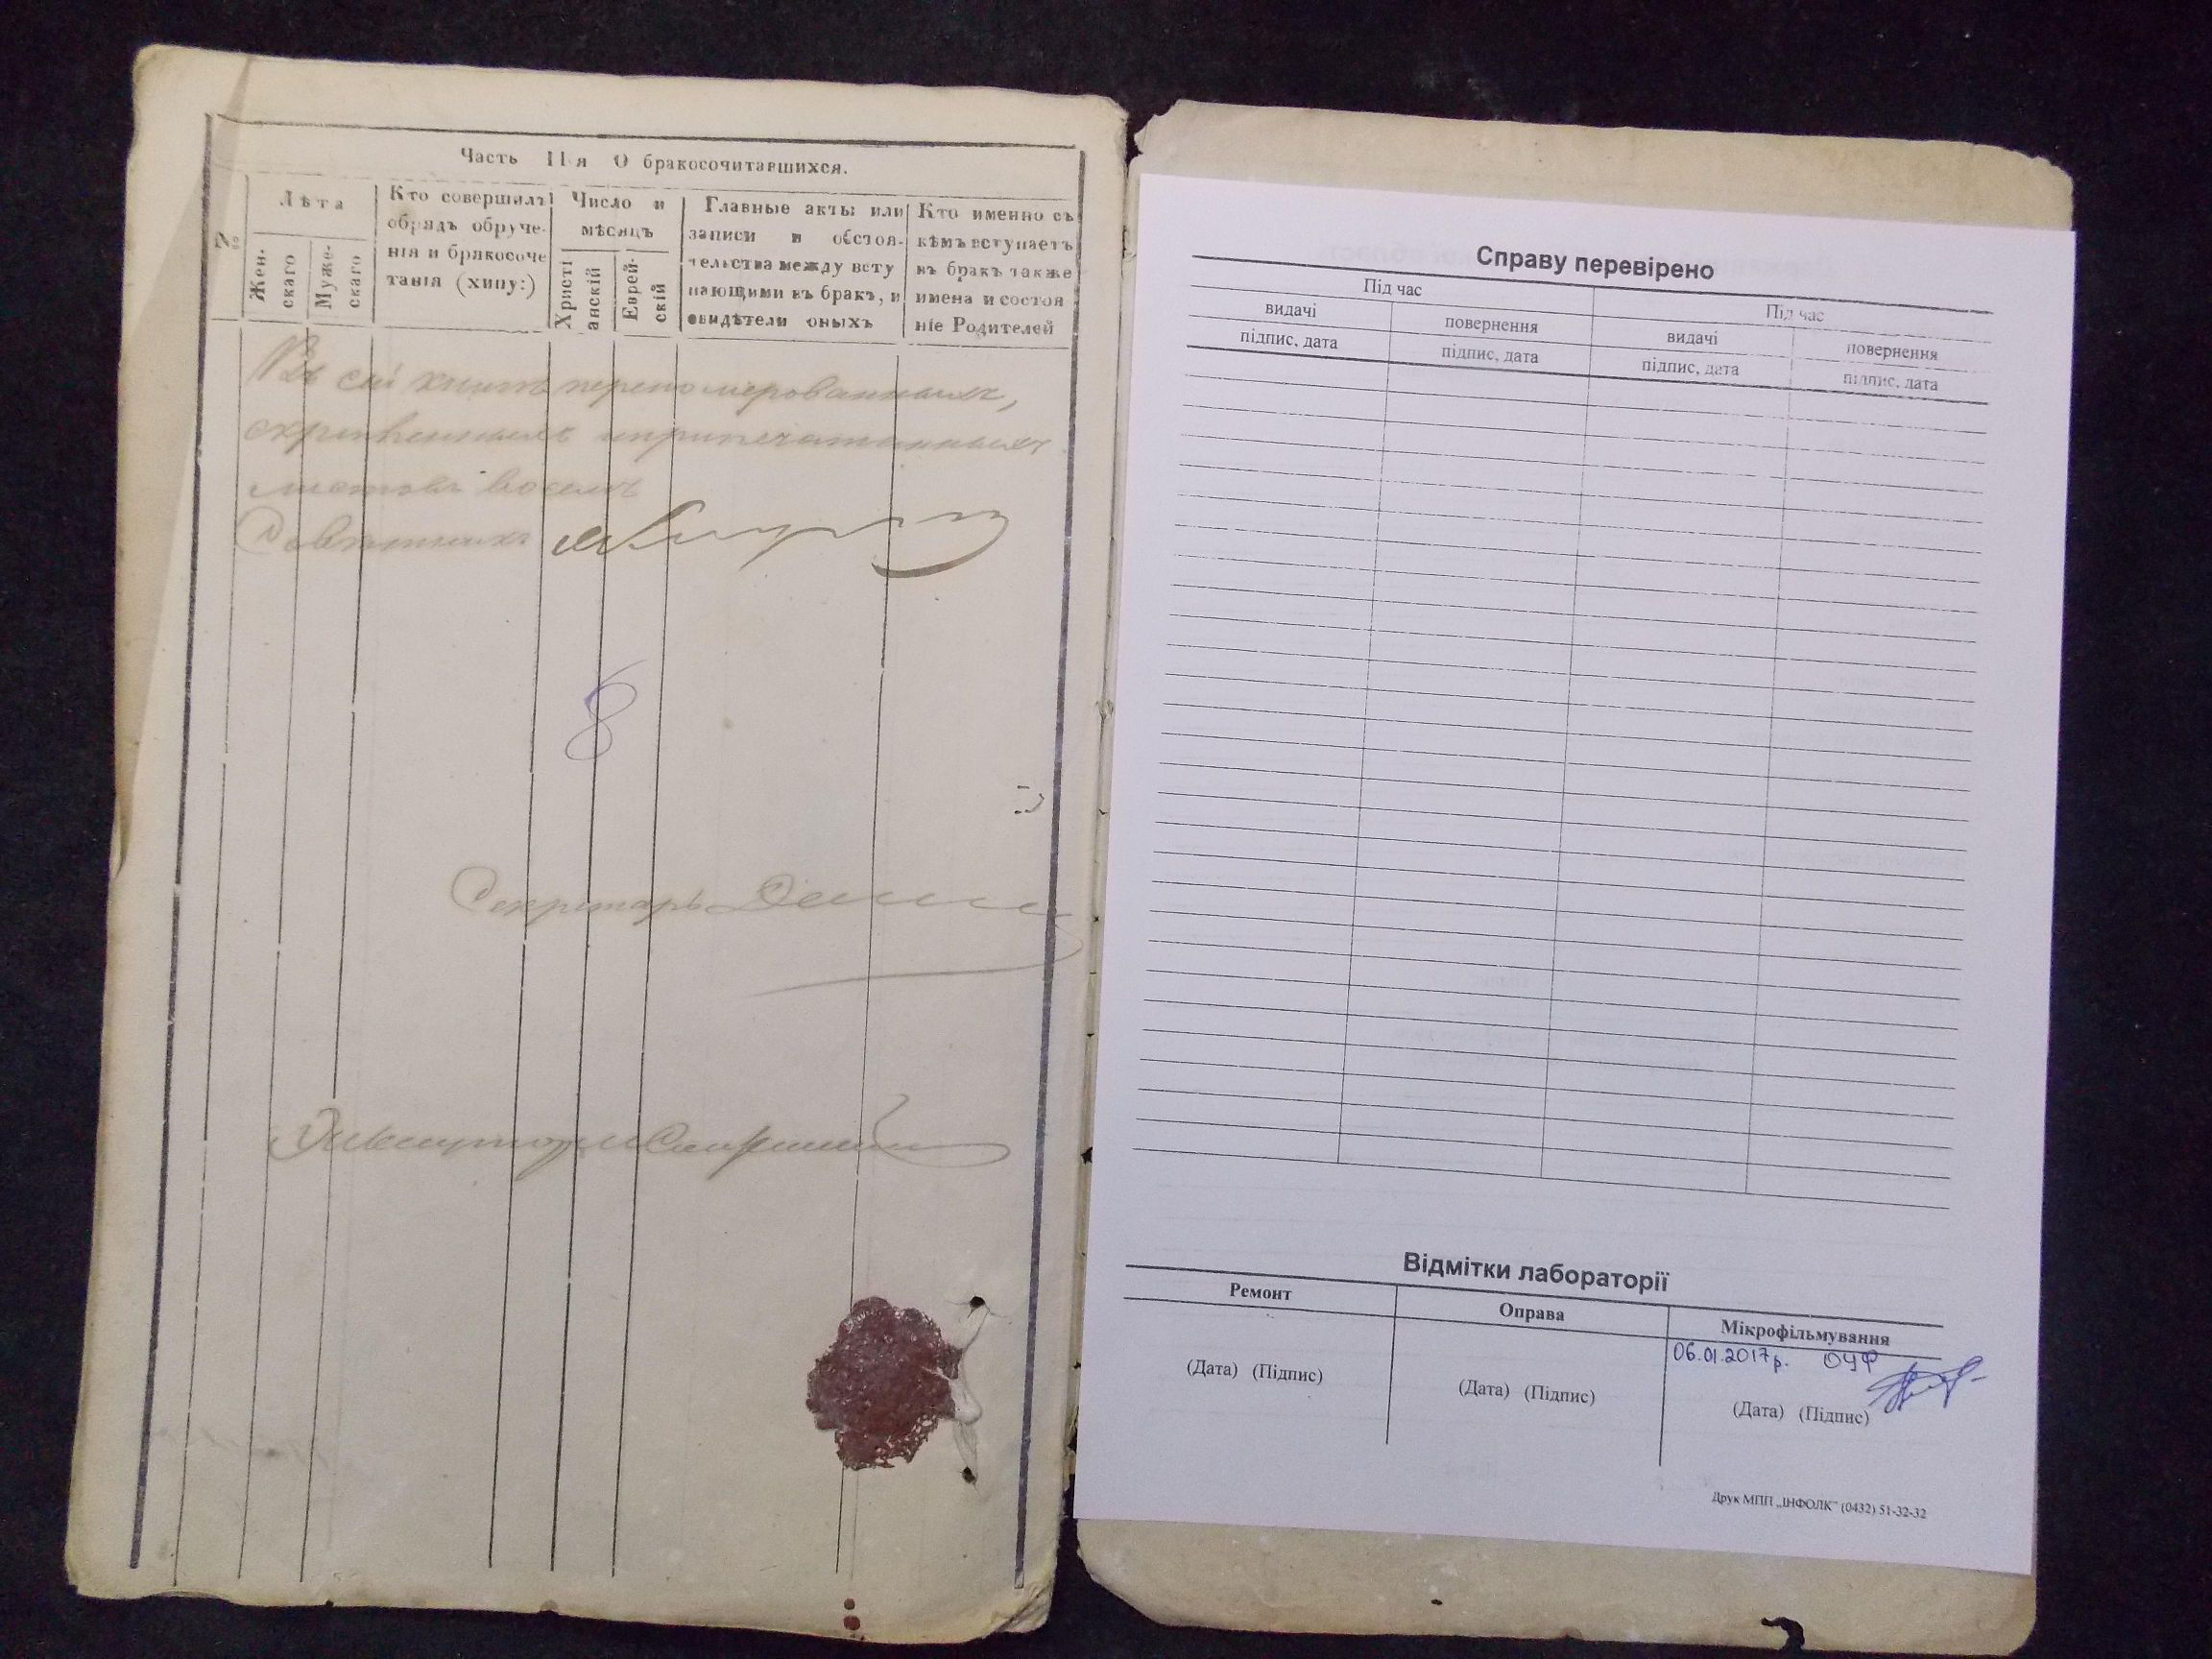 Часть II-я О бракосочитавшихся.
№
Лѣта
Жен-
скаго
Муже-
скаго
Кто совершилъ
обрядъ обруче-
нія и бракосоче
танія (хипу:)
Число и
мѣсяцъ
Христі
анскій
Еврей-
скій
Главные акты или
записи и обстоя-
тельства между всту
пающими въ бракъ, и
свидѣтели оныхъ
Кто именно съ
кѣмъ вступаетъ
въ бракъ также
имена и состоя
ніе Родителей
Въ сей книгѣ перепомерованныхъ,
скрепленныхъ и припечатанныхъ
листовъ восемь
Совѣтникъ
8
Секретарь
Справу перевірено
Під час
Під час
видачі
повернення
видачі
повернення
підпис, дата
підпис, дата
підпис, дата
підпис, дата
Відмітки лабораторії
Ремонт
Оправа
Мікрофільмування
06.01.2017р. ОЦФ
(Дата) (Підпис)
(Дата) (Підпис)
(Дата) (Підпис)
Друк МПП „ІНФОЛК" (0432) 51-32-32